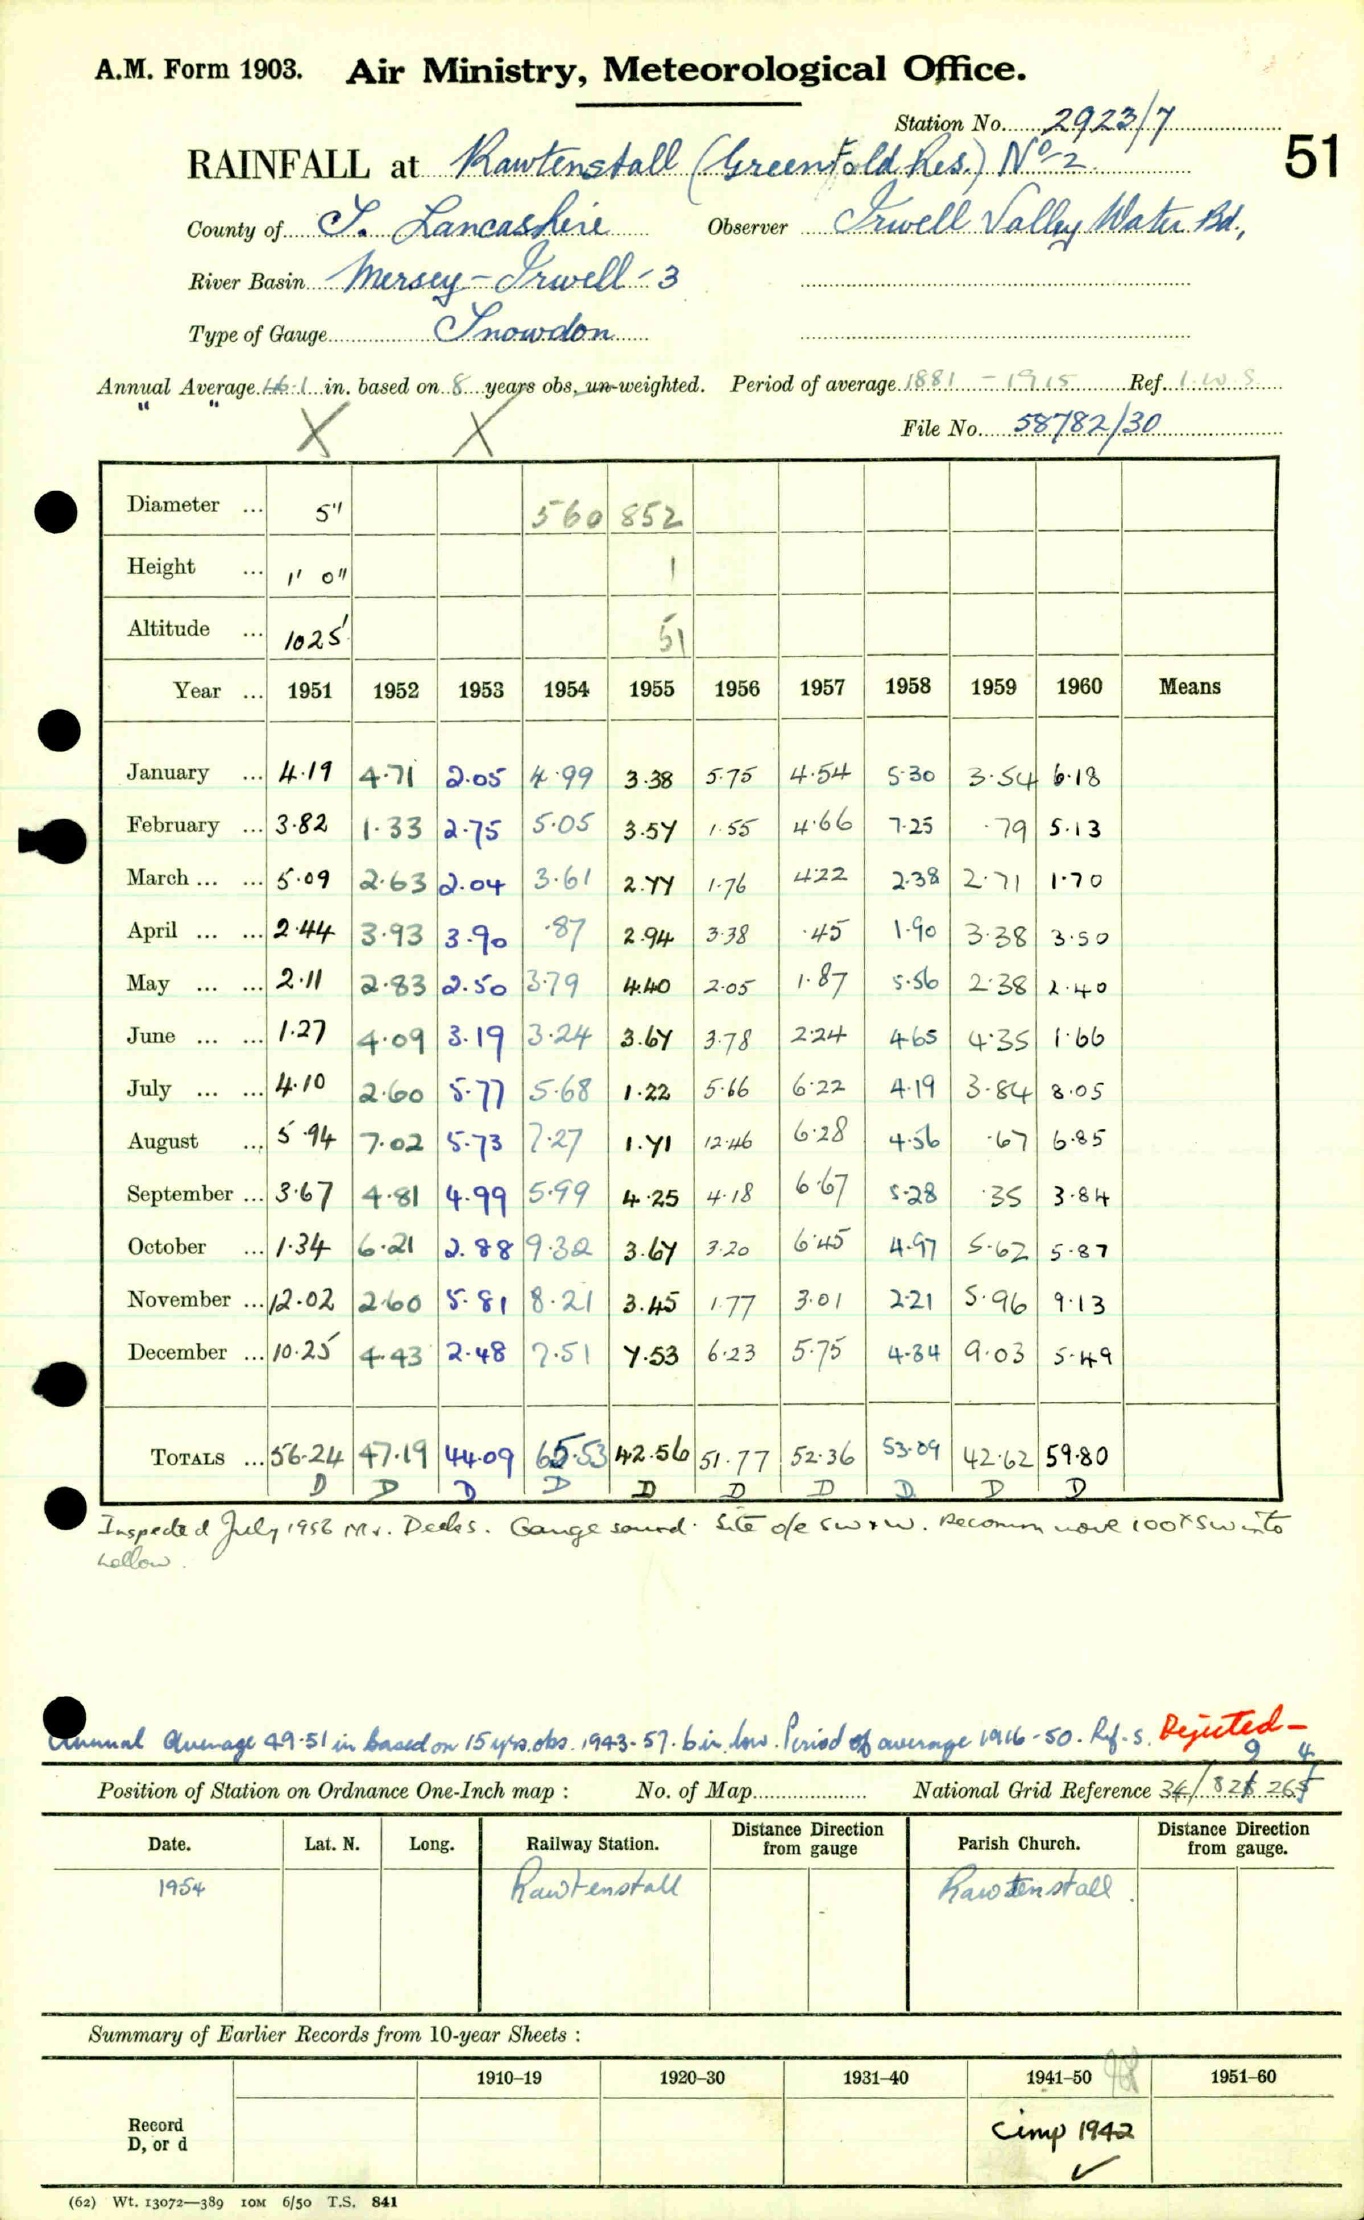 A.M. Form 1903. Air Ministry, Meteorological Office.
Station No. 2923/7
51
RAINFALL at Rawtenstall (Greenfold Res.) No 2
County of S. Lancashire Observer Irwell Valley Water Bd.,
River Basin Mersey - Irwell - 3
Type of Gauge Snowdon
Annual Average 46.1 in. based on 8 years obs. un-weighted. Period of average 1881 - 1915 Ref. I.W.S.
" " X X
File No. 58782/30
Diameter ... 5" 560 852
Height ... 1' 0" 1
Altitude ... 1025' 51
Year ... 1951 1952 1953 1954 1955 1956 1957 1958 1959 1960 Means
January ... 4.19 4.71 2.05 4.99 3.38 5.75 4.54 5.30 3.54 6.18
February ... 3.82 1.33 2.75 5.05 3.57 1.55 4.66 7.25 .79 5.13
March ... ... 5.09 2.63 2.04 3.61 2.77 1.76 4.22 2.38 2.71 1.70
April ... ... 2.44 3.93 3.90 .87 2.94 3.38 .45 1.90 3.38 3.50
May ... ... 2.11 2.83 2.50 3.79 4.40 2.05 1.87 5.56 2.38 2.40
June ... ... 1.27 4.09 3.19 3.24 3.67 3.78 2.24 4.65 4.35 1.66
July ... ... 4.10 2.60 5.77 5.68 1.22 5.66 6.22 4.19 3.84 8.05
August ... 5.94 7.02 5.73 7.27 1.71 12.46 6.28 4.56 .67 6.85
September ... 3.67 4.81 4.99 5.99 4.25 4.18 6.67 5.28 .35 3.84
October ... 1.34 6.21 2.88 9.32 3.67 3.20 6.45 4.97 5.62 5.87
November ... 12.02 2.60 5.81 8.21 3.45 1.77 3.01 2.21 5.96 9.13
December ... 10.25 4.43 2.48 7.51 7.53 6.23 5.75 4.84 9.03 5.49
TOTALS ... 56.24 47.19 44.09 65.53 42.56 51.77 52.36 53.09 42.62 59.80
D D D D D D D D D D
Inspected July 1956 Mr. Deeks. Gauge sound. Site o/e SW + W. Recomm move 100x SW into
hollow.
Annual Average 49.51 in based on 15 yrs. obs. 1943-57. 6 in. low. Period of average 1916-50. Ref. S. Rejected -
9 4
Position of Station on Ordnance One-Inch map : No. of Map National Grid Reference 34/828 265
Date. Lat. N. Long. Railway Station. Distance from Direction gauge Parish Church. Distance from Direction gauge.
1954 Rawtenstall Rawtenstall
Summary of Earlier Records from 10-year Sheets :
1910–19 1920–30 1931–40 1941–50 1951–60
Record
D, or d
Cimp 1942
✓
(62) Wt. 13072—389 10M 6/50 T.S. 841